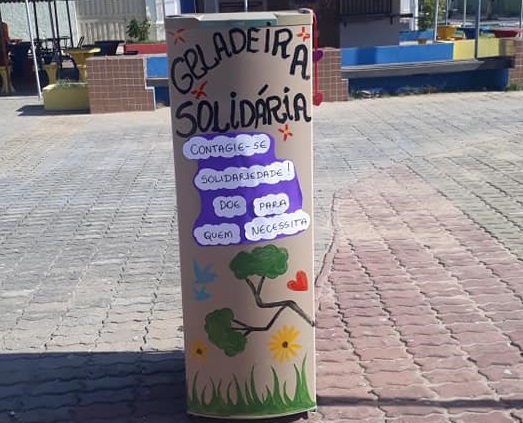 GELADEIRA
SOLIDÁRIA
CONTAGIE-SE
SOLIDARIEDADE!
DOE PARA
QUEM NECESSITA